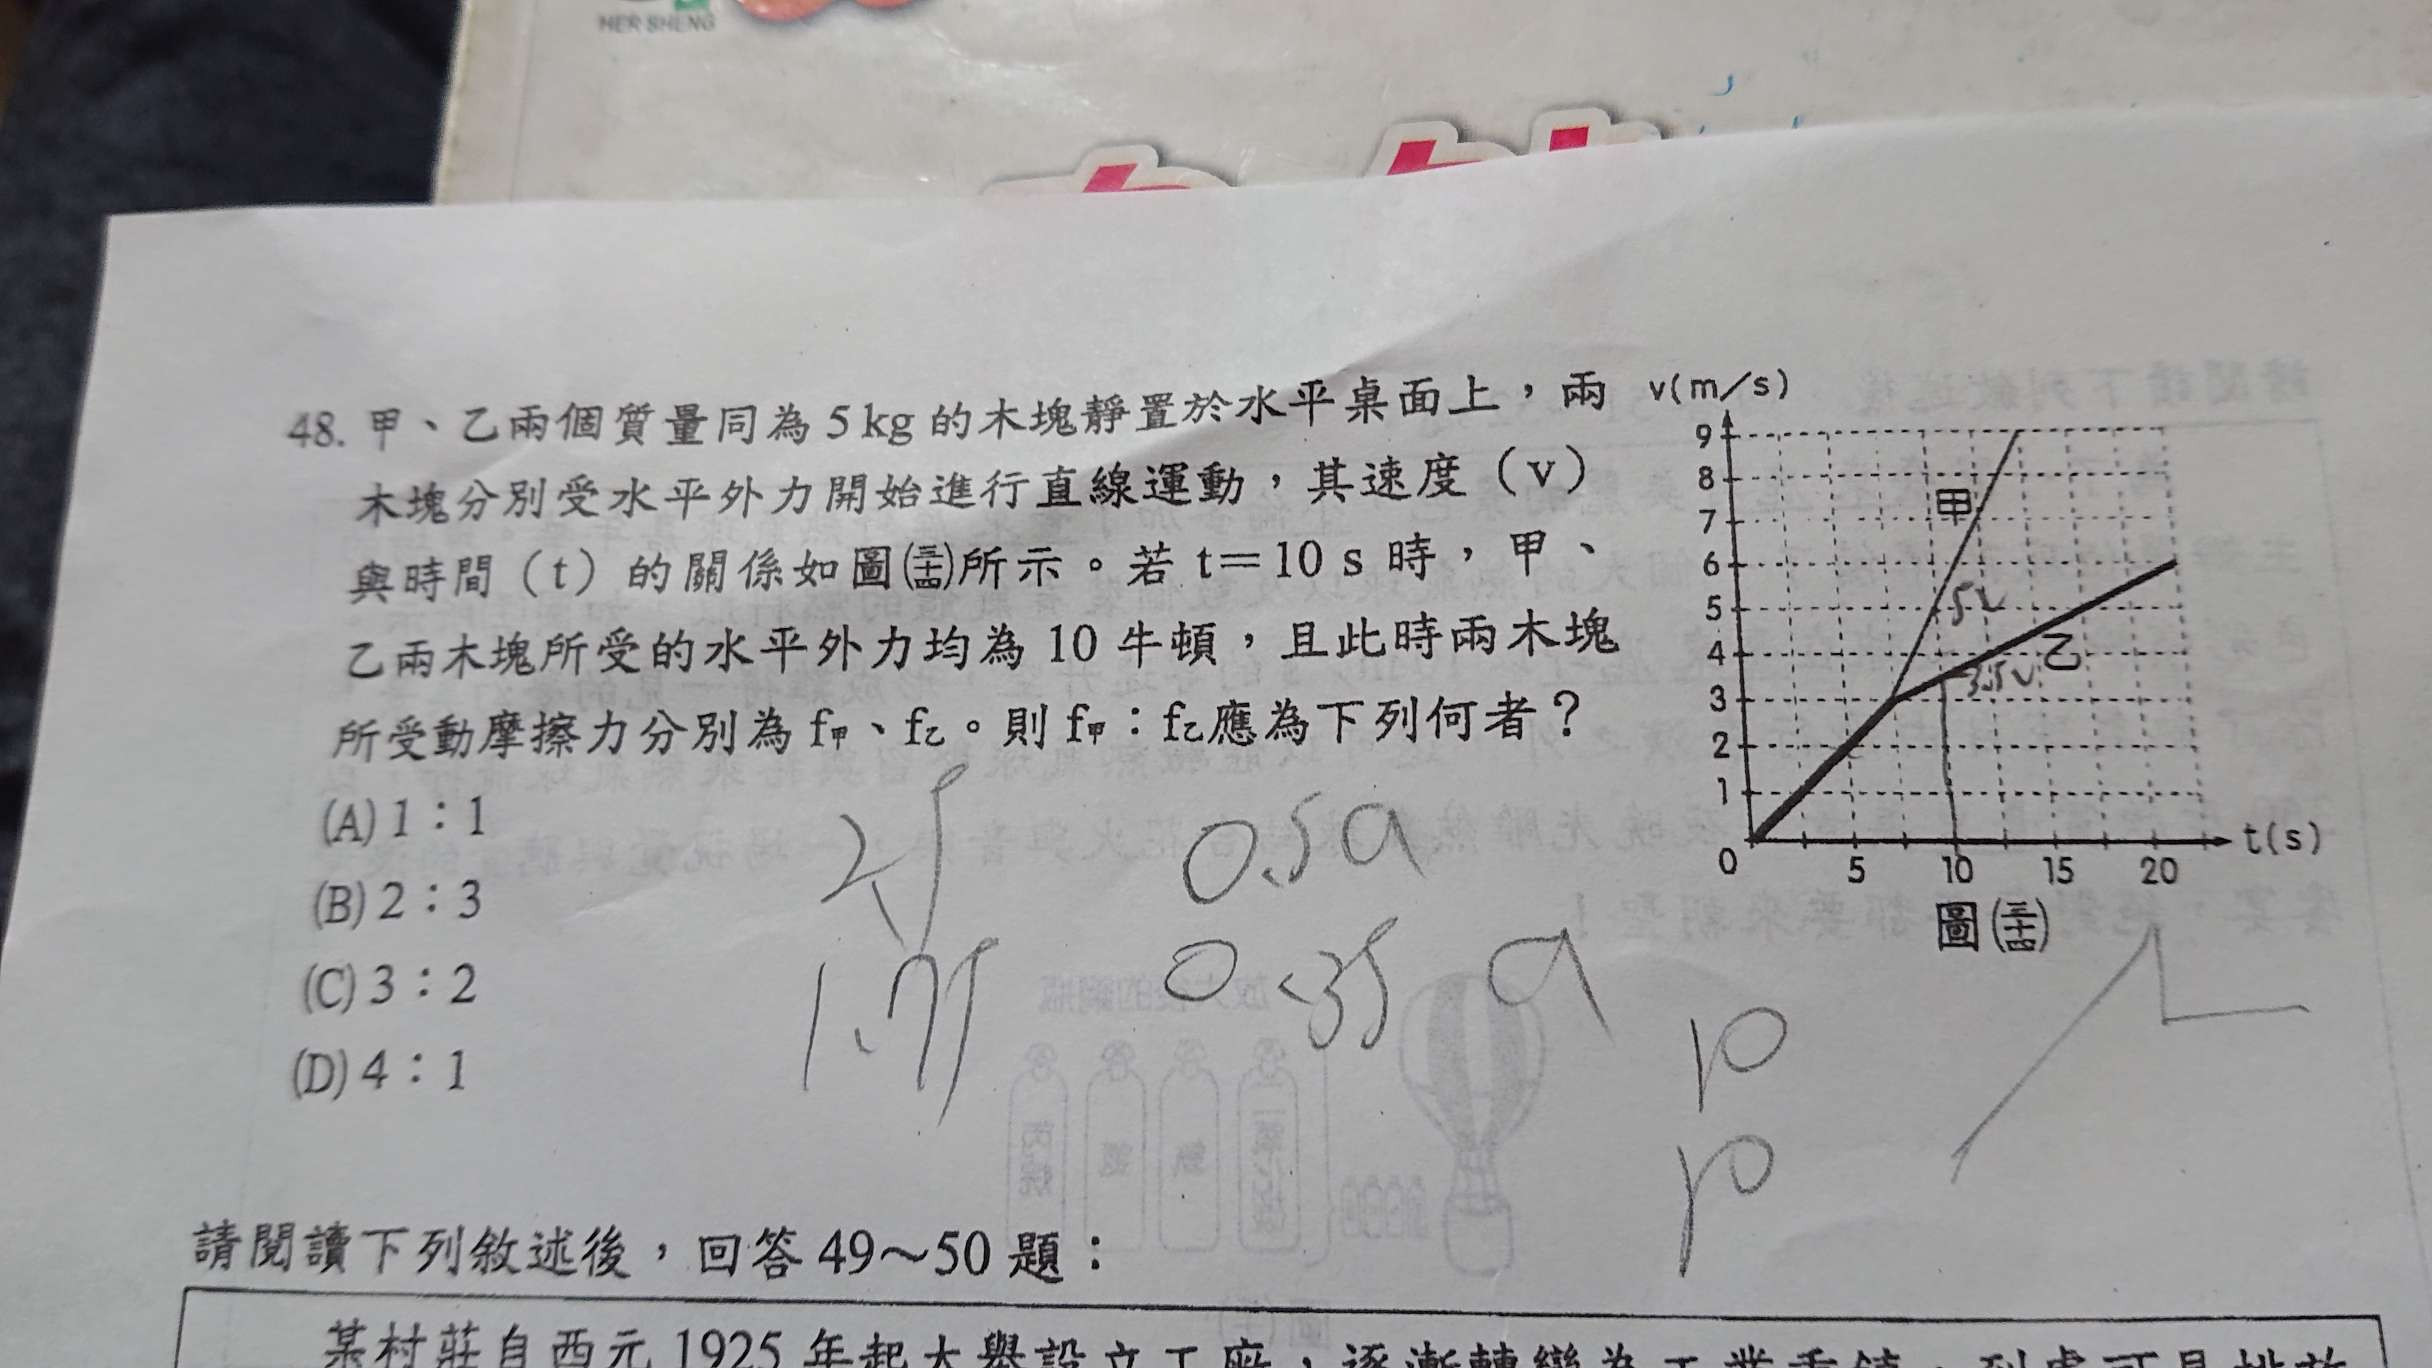 HER SHENG
48. 甲、乙兩個質量同為 5 kg 的木塊靜置於水平桌面上，兩
木塊分別受水平外力開始進行直線運動，其速度（v）
與時間（t）的關係如圖(三十四)所示。若 t＝10 s 時，甲、
乙兩木塊所受的水平外力均為 10 牛頓，且此時兩木塊
所受動摩擦力分別為 f甲、f乙。則 f甲：f乙應為下列何者？
(A) 1：1
(B) 2：3
(C) 3：2
(D) 4：1
v(m/s)
9
8
7
6
5
4
3
2
1
0
5
10
15
20
t(s)
甲
乙
圖(三十四)
2.5
0.5a
1.75
0.35 a
10
10
請閱讀下列敘述後，回答 49～50 題：
某村莊自西元 1925 年起大舉設立工廠，逐漸轉變為工業重鎮，到處可見排放